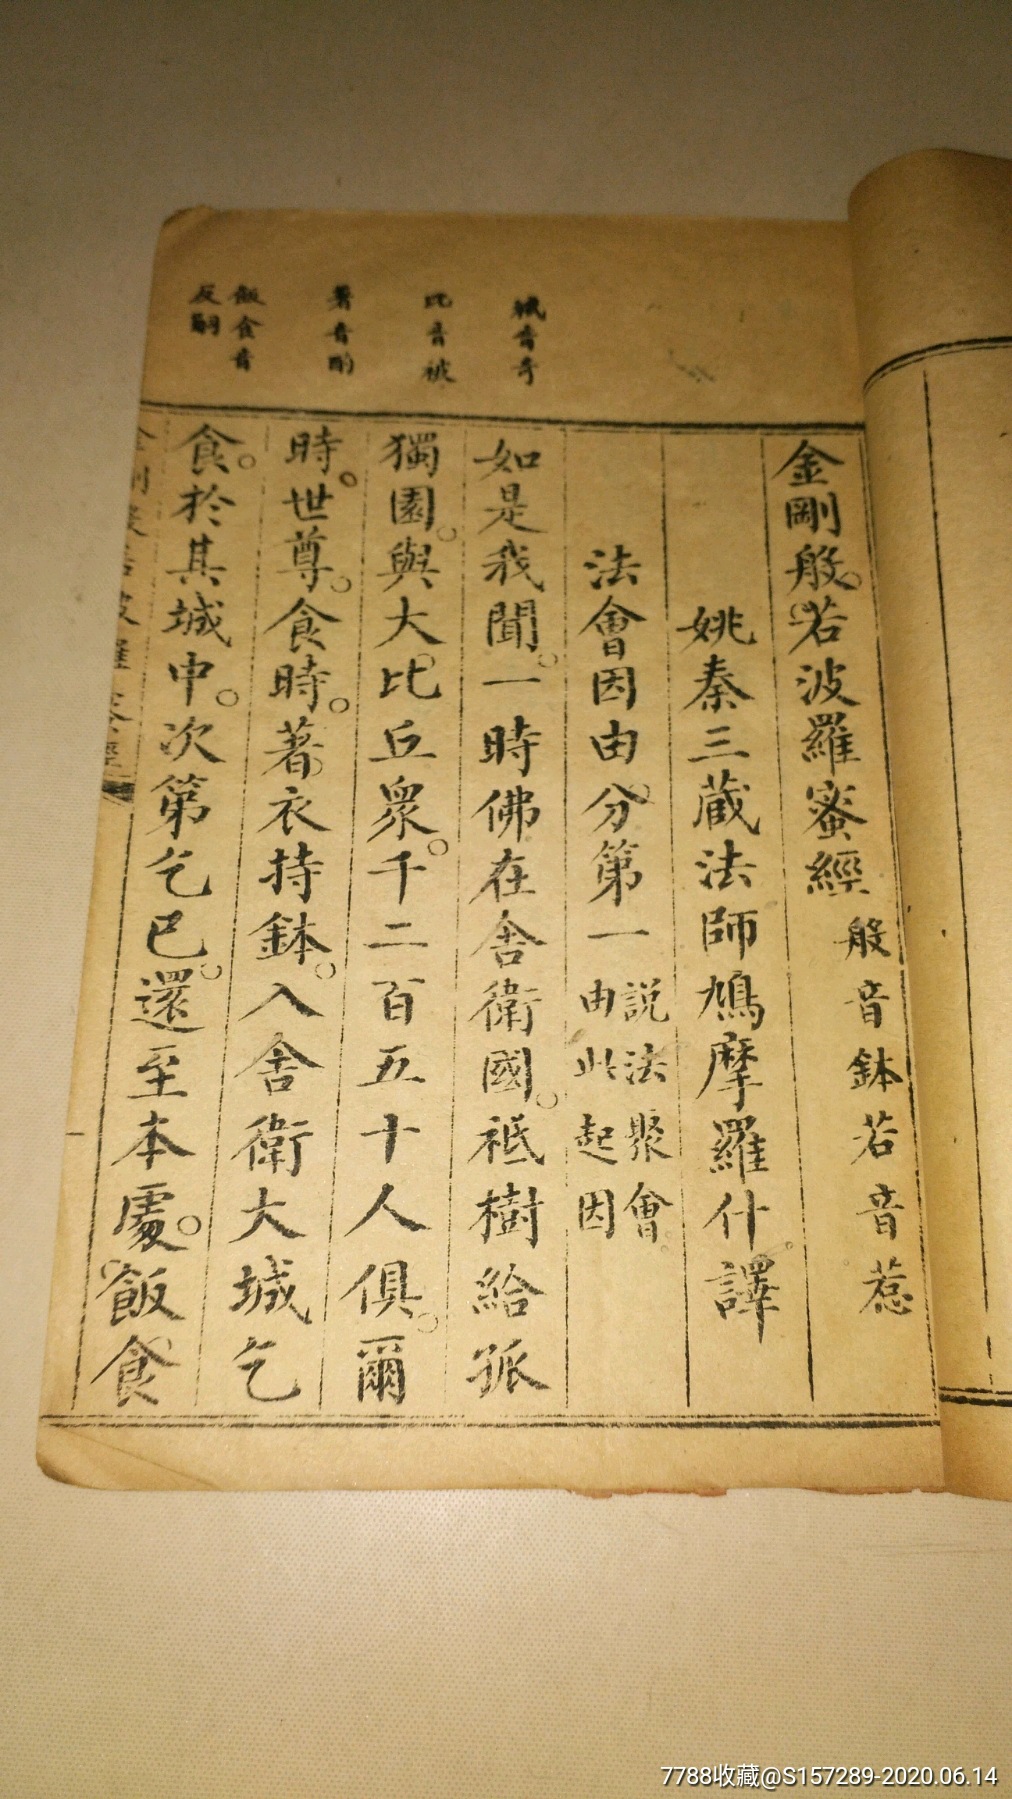 祇音奇
比音被
著音酌
飯食音
反嗣
金剛般若波羅蜜經 般音鉢若音惹
姚秦三藏法師鳩摩羅什譯
法會因由分第一 説法聚會
由此起因
如是我聞。一時佛在舍衛國。祗樹給孤
獨園。與大比丘衆。千二百五十人俱。爾
時。世尊。食時。著衣持鉢。入舍衛大城乞
食。於其城中。次第乞巳。還至本處。飯食
7788收藏@S157289-2020.06.14